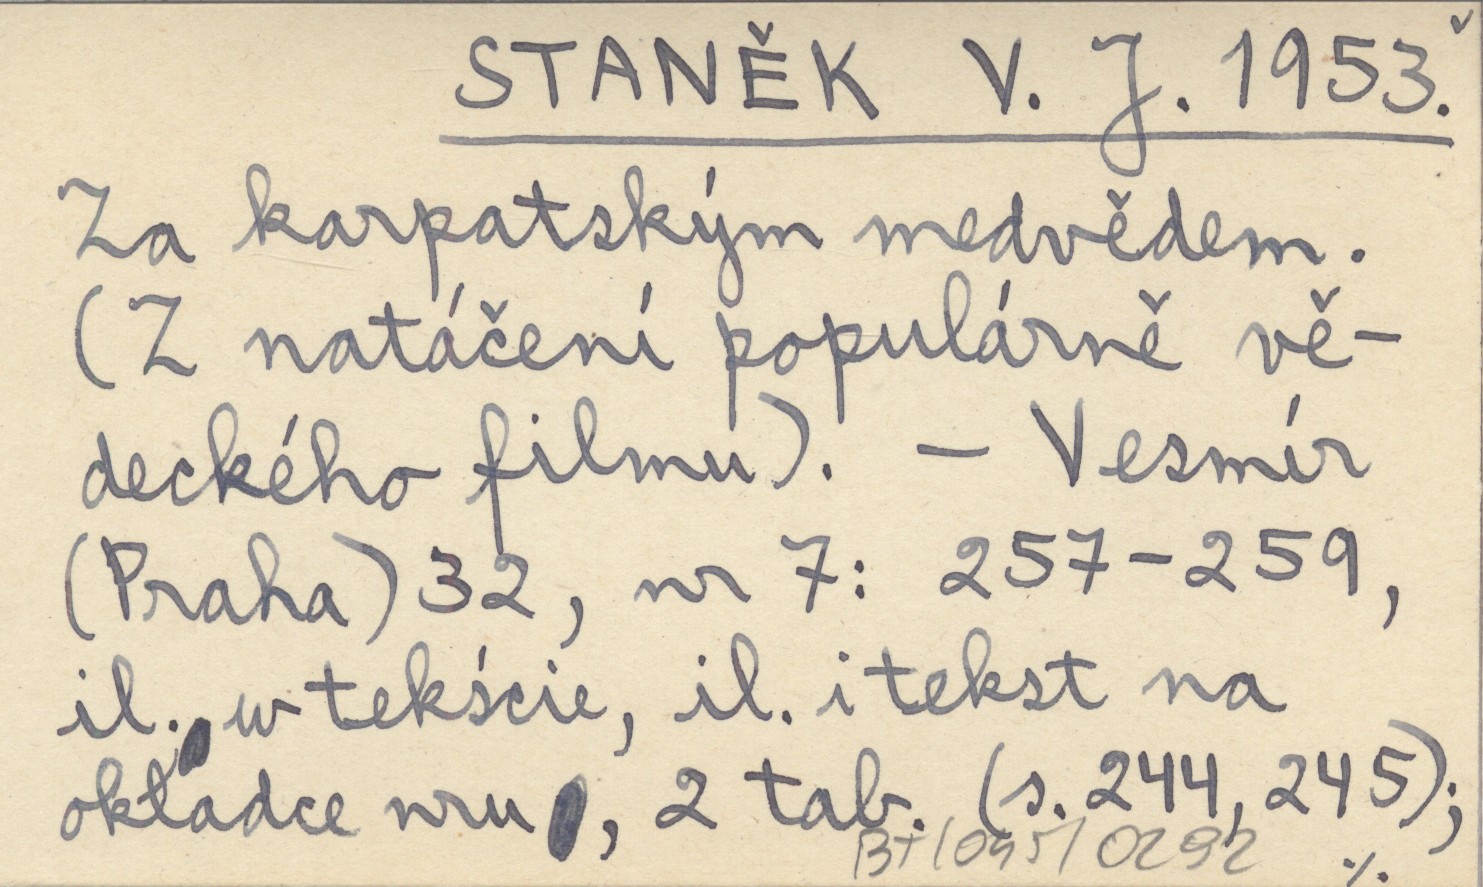 STANĚK V. J. 1953.
Za karpatským medvědem.
(Z natáčení populárně vě-
deckého filmu). – Vesmír
(Praha) 32, nr 7: 257–259,
il. w tekście, il. i tekst na
okładce nru, 2 tab. (s. 244, 245);
B+/095/0292 ./.